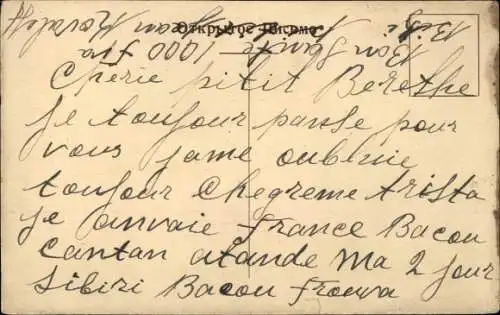 Открытое письмо
Bon Sante 1000 fra
Cherie pitit Berethe
je toujour panse pour
vous jame oublie
toujour Chegreme trista
je anvaie France Bacou
cantan atande ma 2 jour
Sibiri Bacou froua